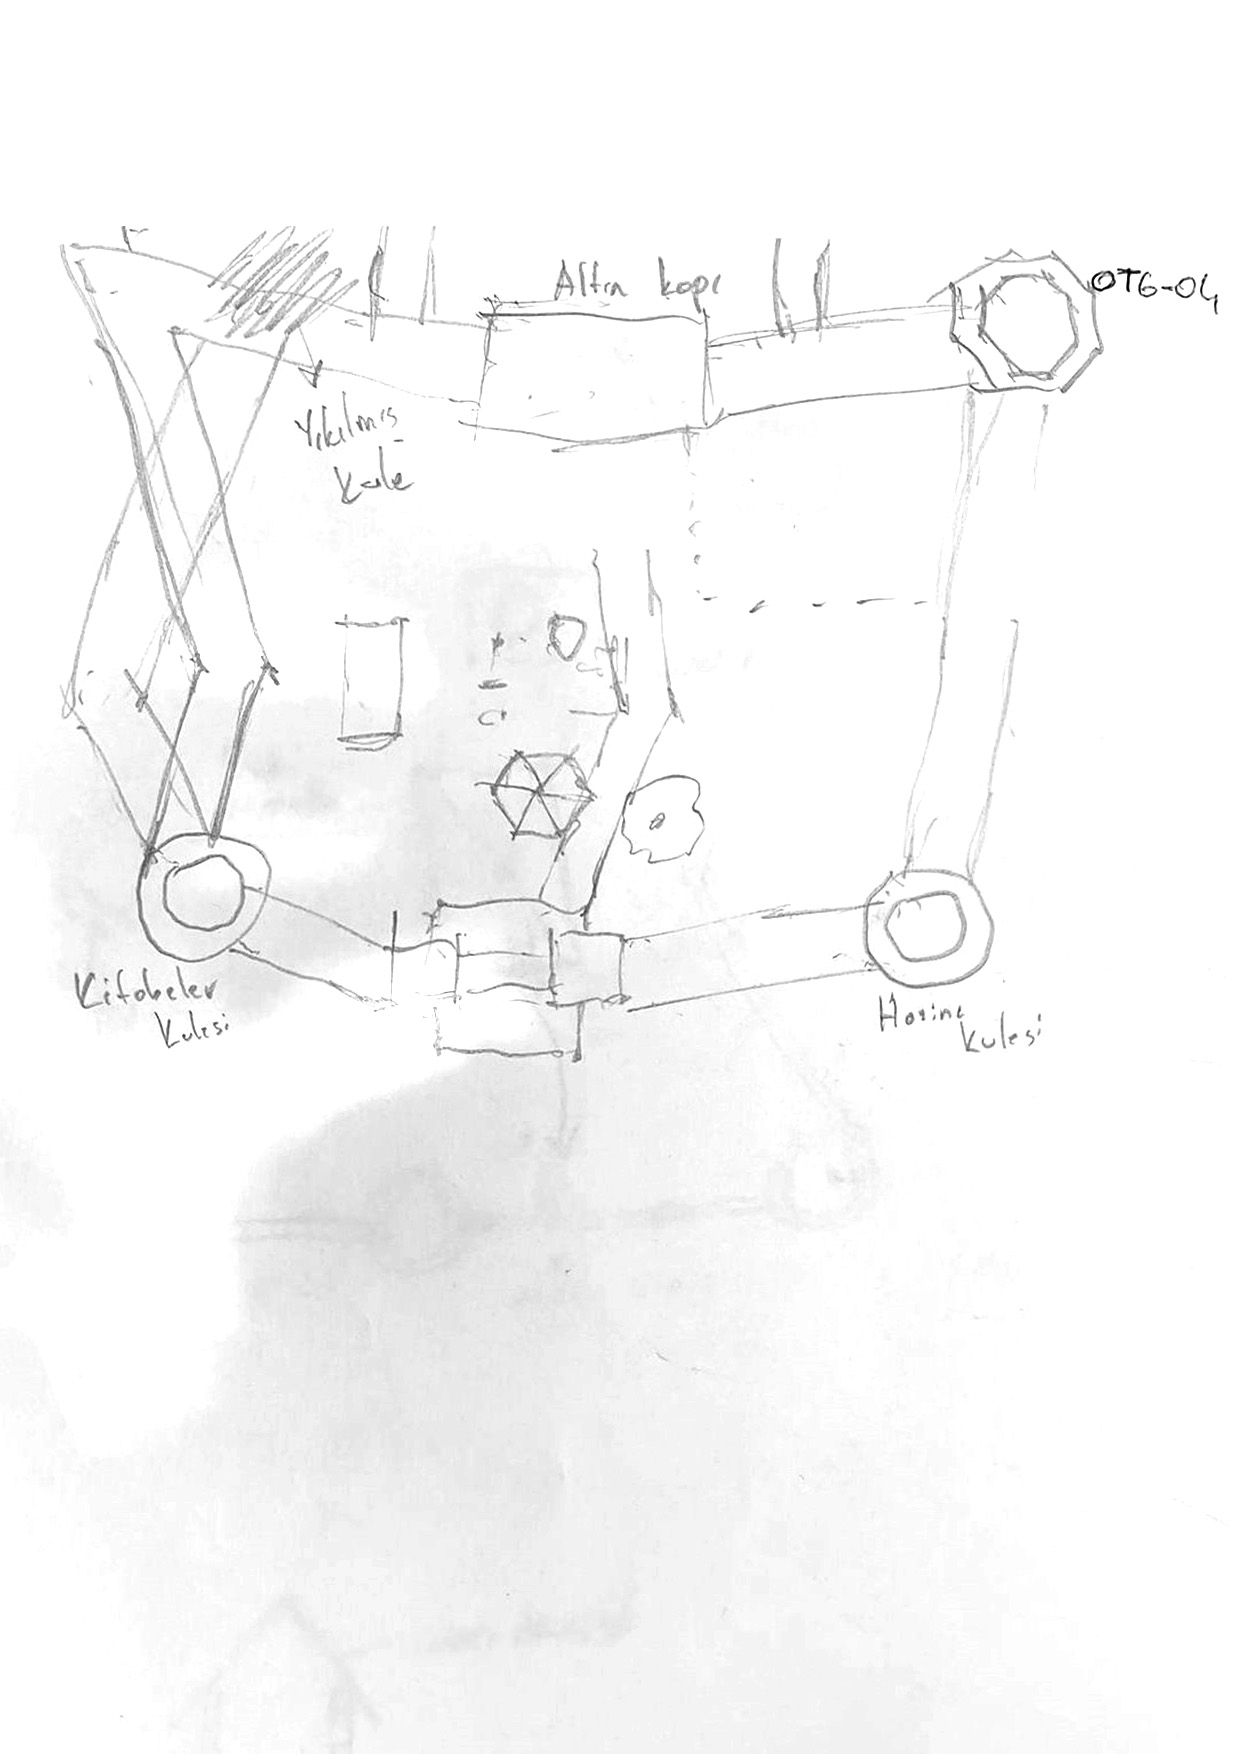 Altın kapı
OT6-04
Yıkılmış
kule
Kitabeler
Kulesi
Hazine
kulesi